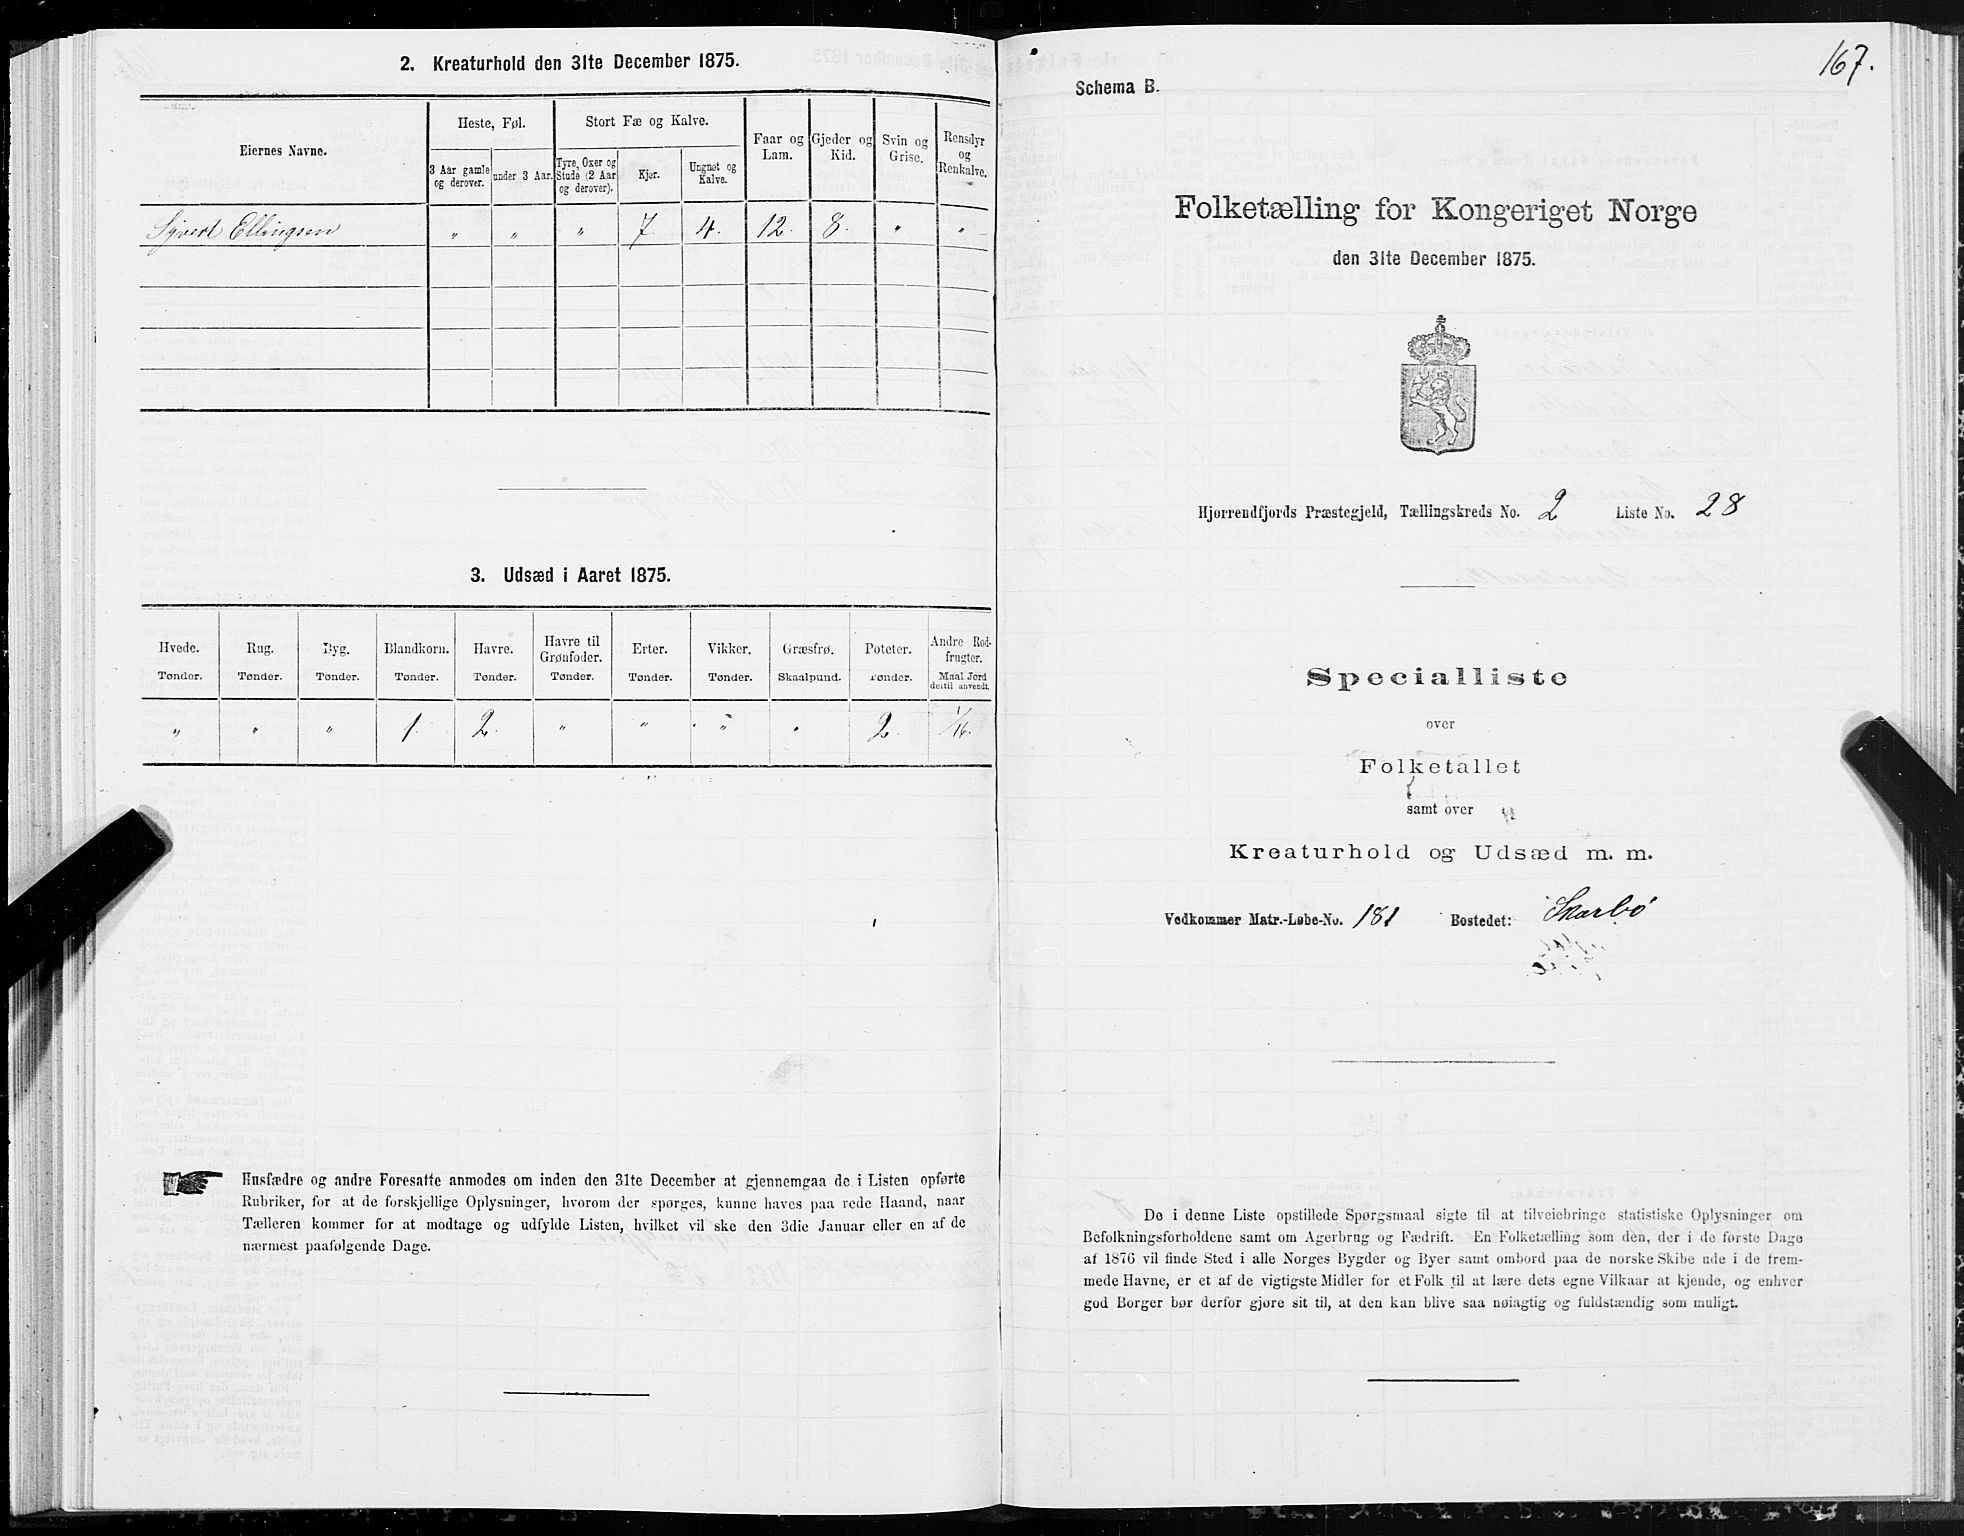 2. Kreaturhold den 31te December 1875.
Eiernes Navne.
Heste, Føl.
Stort Fæ og Kalve.
Faar og Lam.
Gjeder og Kid.
Svin og Grise.
Rensdyr og Renkalve.
3 Aar gamle og derover.
under 3 Aar.
Tyre, Oxer og Stude (2 Aar og derover).
Kjør.
Ungnøt og Kalve.
Syvert Ellingsen " " " 7. 4. 12. 8. " "
3. Udsæd i Aaret 1875.
Hvede. Rug. Byg. Blandkorn. Havre. Havre til Grønfoder. Erter. Vikker. Græsfrø. Poteter. Andre Rodfrugter.
Tønder. Tønder. Tønder. Tønder. Tønder. Tønder. Tønder. Tønder. Skaalpund. Tønder. Maal Jord dertil anvendt.
" " " 1. 2. " " " " 2. 1/16.
Husfædre og andre Foresatte anmodes om inden den 31te December at gjennemgaa de i Listen opførte
Rubriker, for at de forskjellige Oplysninger, hvorom der spørges, kunne haves paa rede Haand, naar
Tælleren kommer for at modtage og udfylde Listen, hvilket vil ske den 3die Januar eller en af de
nærmest paafølgende Dage.
167.
Schema B.
Folketælling for Kongeriget Norge
den 31te December 1875.
Hjorrendfjords Præstegjeld, Tællingskreds No. 2 Liste No. 28
Specialliste
over
Folketallet
samt over
Kreaturhold og Udsæd m. m.
Vedkommer Matr.-Løbe-No. 181 Bostedet: Skarbö
De i denne Liste opstillede Spørgsmaal sigte til at tilveiebringe statistiske Oplysninger om
Befolkningsforholdene samt om Agerbrug og Fædrift. En Folketælling som den, der i de første Dage
af 1876 vil finde Sted i alle Norges Bygder og Byer samt ombord paa de norske Skibe ude i de frem-
mede Havne, er et af de vigtigste Midler for et Folk til at lære dets egne Vilkaar at kjende, og enhver
god Borger bør derfor gjøre sit til, at den kan blive saa nøiagtig og fuldstændig som muligt.